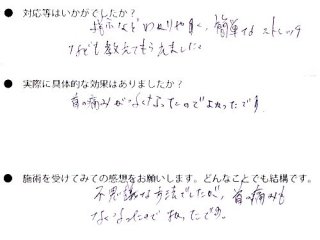 ● 対応等はいかがでしたか？
指示などわかりやすく、簡単なストレッチ
なども教えてもらえました。
● 実際に具体的な効果はありましたか？
首の痛みがなくなったのでよかったです。
● 施術を受けてみての感想をお願いします。どんなことでも結構です。
不思議な方法でしたが、首の痛みも
なくなったのでよかったです。